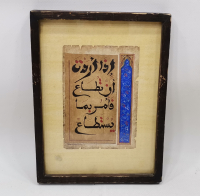 إذا أردت
أن تطاع
فأمر بما
يستطاع